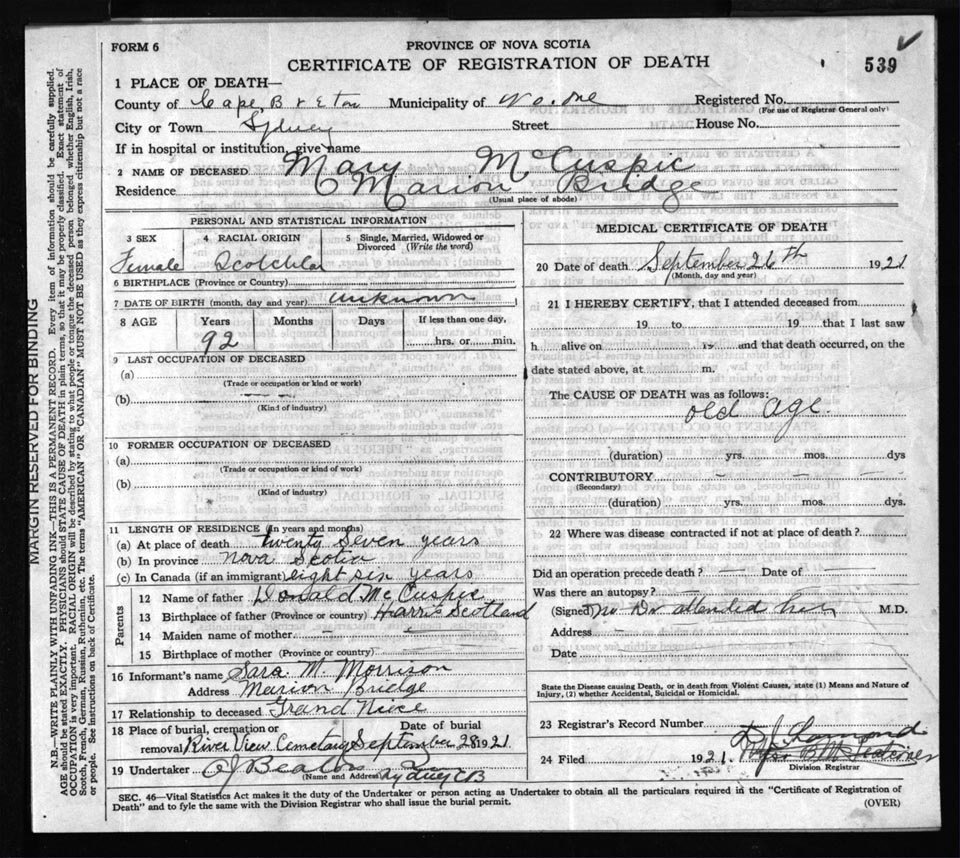 FORM 6
PROVINCE OF NOVA SCOTIA
CERTIFICATE OF REGISTRATION OF DEATH
539
1 PLACE OF DEATH—
County of Cape Breton Municipality of No. One Registered No.
(For use of Registrar General only)
City or Town Sydney Street House No.
If in hospital or institution, give name
2 NAME OF DECEASED Mary McCuspic
Residence Marion Bridge
(Usual place of abode)
PERSONAL AND STATISTICAL INFORMATION
3 SEX 4 RACIAL ORIGIN 5 Single, Married, Widowed or Divorced (Write the word)
Female Scotch
6 BIRTHPLACE (Province or County)
7 DATE OF BIRTH (month, day and year) unknown
8 AGE Years Months Days If less than one day,
92 hrs. or min.
9 LAST OCCUPATION OF DECEASED
(a)
(Trade or occupation or kind or work)
(b)
(Kind of industry)
10 FORMER OCCUPATION OF DECEASED
(a)
(Trade or occupation or kind of work)
(b)
(Kind of industry)
11 LENGTH OF RESIDENCE (In years and months)
(a) At place of death twenty seven years
(b) In province Nova Scotia
(c) In Canada (if an immigrant) eight six years
Parents
12 Name of father Donald McCuspic
13 Birthplace of father (Province or country) Harris Scotland
14 Maiden name of mother
15 Birthplace of mother (Province or country)
16 Informant's name Sara M. Morrison
Address Marion Bridge
17 Relationship to deceased Grand Neice
18 Place of burial, cremation or removal River View Cemetary Date of burial September 28 1921
19 Undertaker A J Beaton Sydney CB
(Name and Address)
MEDICAL CERTIFICATE OF DEATH
20 Date of death September 26th 1921
(Month, day and year)
21 I HEREBY CERTIFY, that I attended deceased from
19 to 19 that I last saw
h alive on 19 and that death occurred, on the
date stated above, at m.
The CAUSE OF DEATH was as follows:
old age.
(duration) yrs. mos. dys
CONTRIBUTORY
(Secondary)
(duration) yrs. mos. dys.
22 Where was disease contracted if not at place of death?
Did an operation precede death? Date of
Was there an autopsy?
(Signed) no Dr attended her M.D.
Address
Date
State the Disease causing Death, or in death from Violent Causes, state (1) Means and Nature of Injury, (2) whether Accidental, Suicidal or Homicidal.
23 Registrar's Record Number
24 Filed 1921
Division Registrar
SEC. 46—Vital Statistics Act makes it the duty of the Undertaker or person acting as Undertaker to obtain all the particulars required in the "Certificate of Registration of
Death" and to fyle the same with the Division Registrar who shall issue the burial permit.
(OVER)
MARGIN RESERVED FOR BINDING
N.B.—WRITE PLAINLY WITH UNFADING INK—THIS IS A PERMANENT RECORD. Every item of information should be carefully supplied.
AGE should be stated EXACTLY. PHYSICIANS should STATE CAUSE OF DEATH in plain terms, so that it may be properly classified. Exact statement of
OCCUPATION is very important. RACIAL ORIGIN will be described by stating to what people or tongue the deceased person belonged, whether English, Irish,
Scotch, French, German, Russian, Ruthenian, etc. The terms "AMERICAN" OR "CANADIAN" MUST NOT BE USED as they express citizenship but not a race
or people. See instructions on back of Certificate.